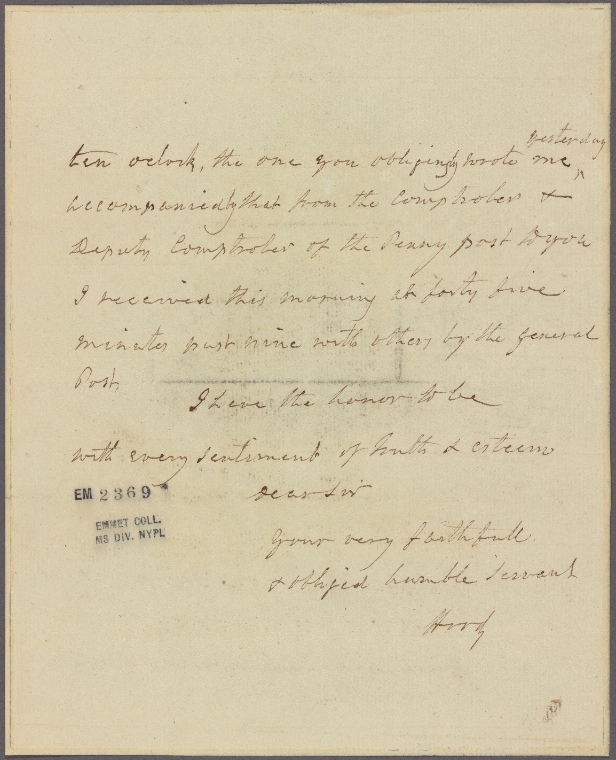 yesterday
ten oclock, the one you obligingly wrote me ^
accompanied by that from the Comptroler &
Deputy Comptroler of the Penny post to you
I received this morning at forty five
minutes past nine with others by the general
Post,
I have the honor to be
with every sentiment of truth & esteem
Dear Sir
Your very faithfull
& obliged humble servant
EM 2369
EMMET COLL.
MS DIV. NYPL